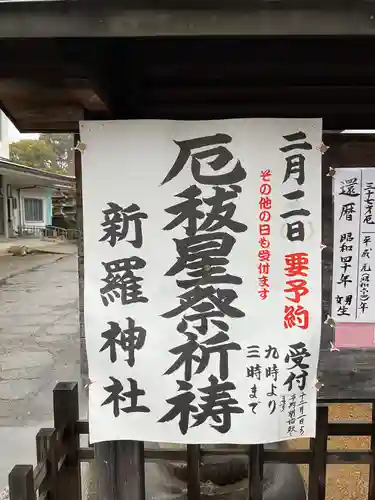 二月二日
要予約
受付
九時より
三時まで
その他の日も受付ます
厄祓星祭祈祷
新羅神社
還暦
昭和四十年
生
三十七才厄
平成元年